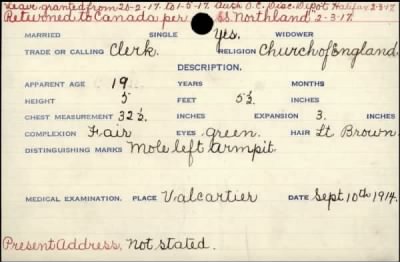 Leave granted from 26-2-17. to 1-6-17. Auth O.C. Disc. Depot Halifax 2-3-17.
Returned to Canada per SS "Northland" 2-3-17.
MARRIED SINGLE Yes. WIDOWER
TRADE OR CALLING Clerk. RELIGION Church of England.
APPARENT AGE 19 YEARS MONTHS
HEIGHT 5 FEET 5½ INCHES
CHEST MEASUREMENT 32½. INCHES EXPANSION 3. INCHES
COMPLEXION Fair EYES green. HAIR Lt Brown.
DISTINGUISHING MARKS Mole left armpit.
MEDICAL EXAMINATION. PLACE Valcartier DATE Sept 10th 1914.
Present Address. Not stated.